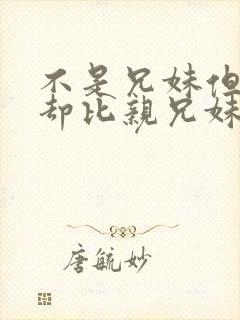 不是兄妹但
却比亲兄妹
唐毓妙